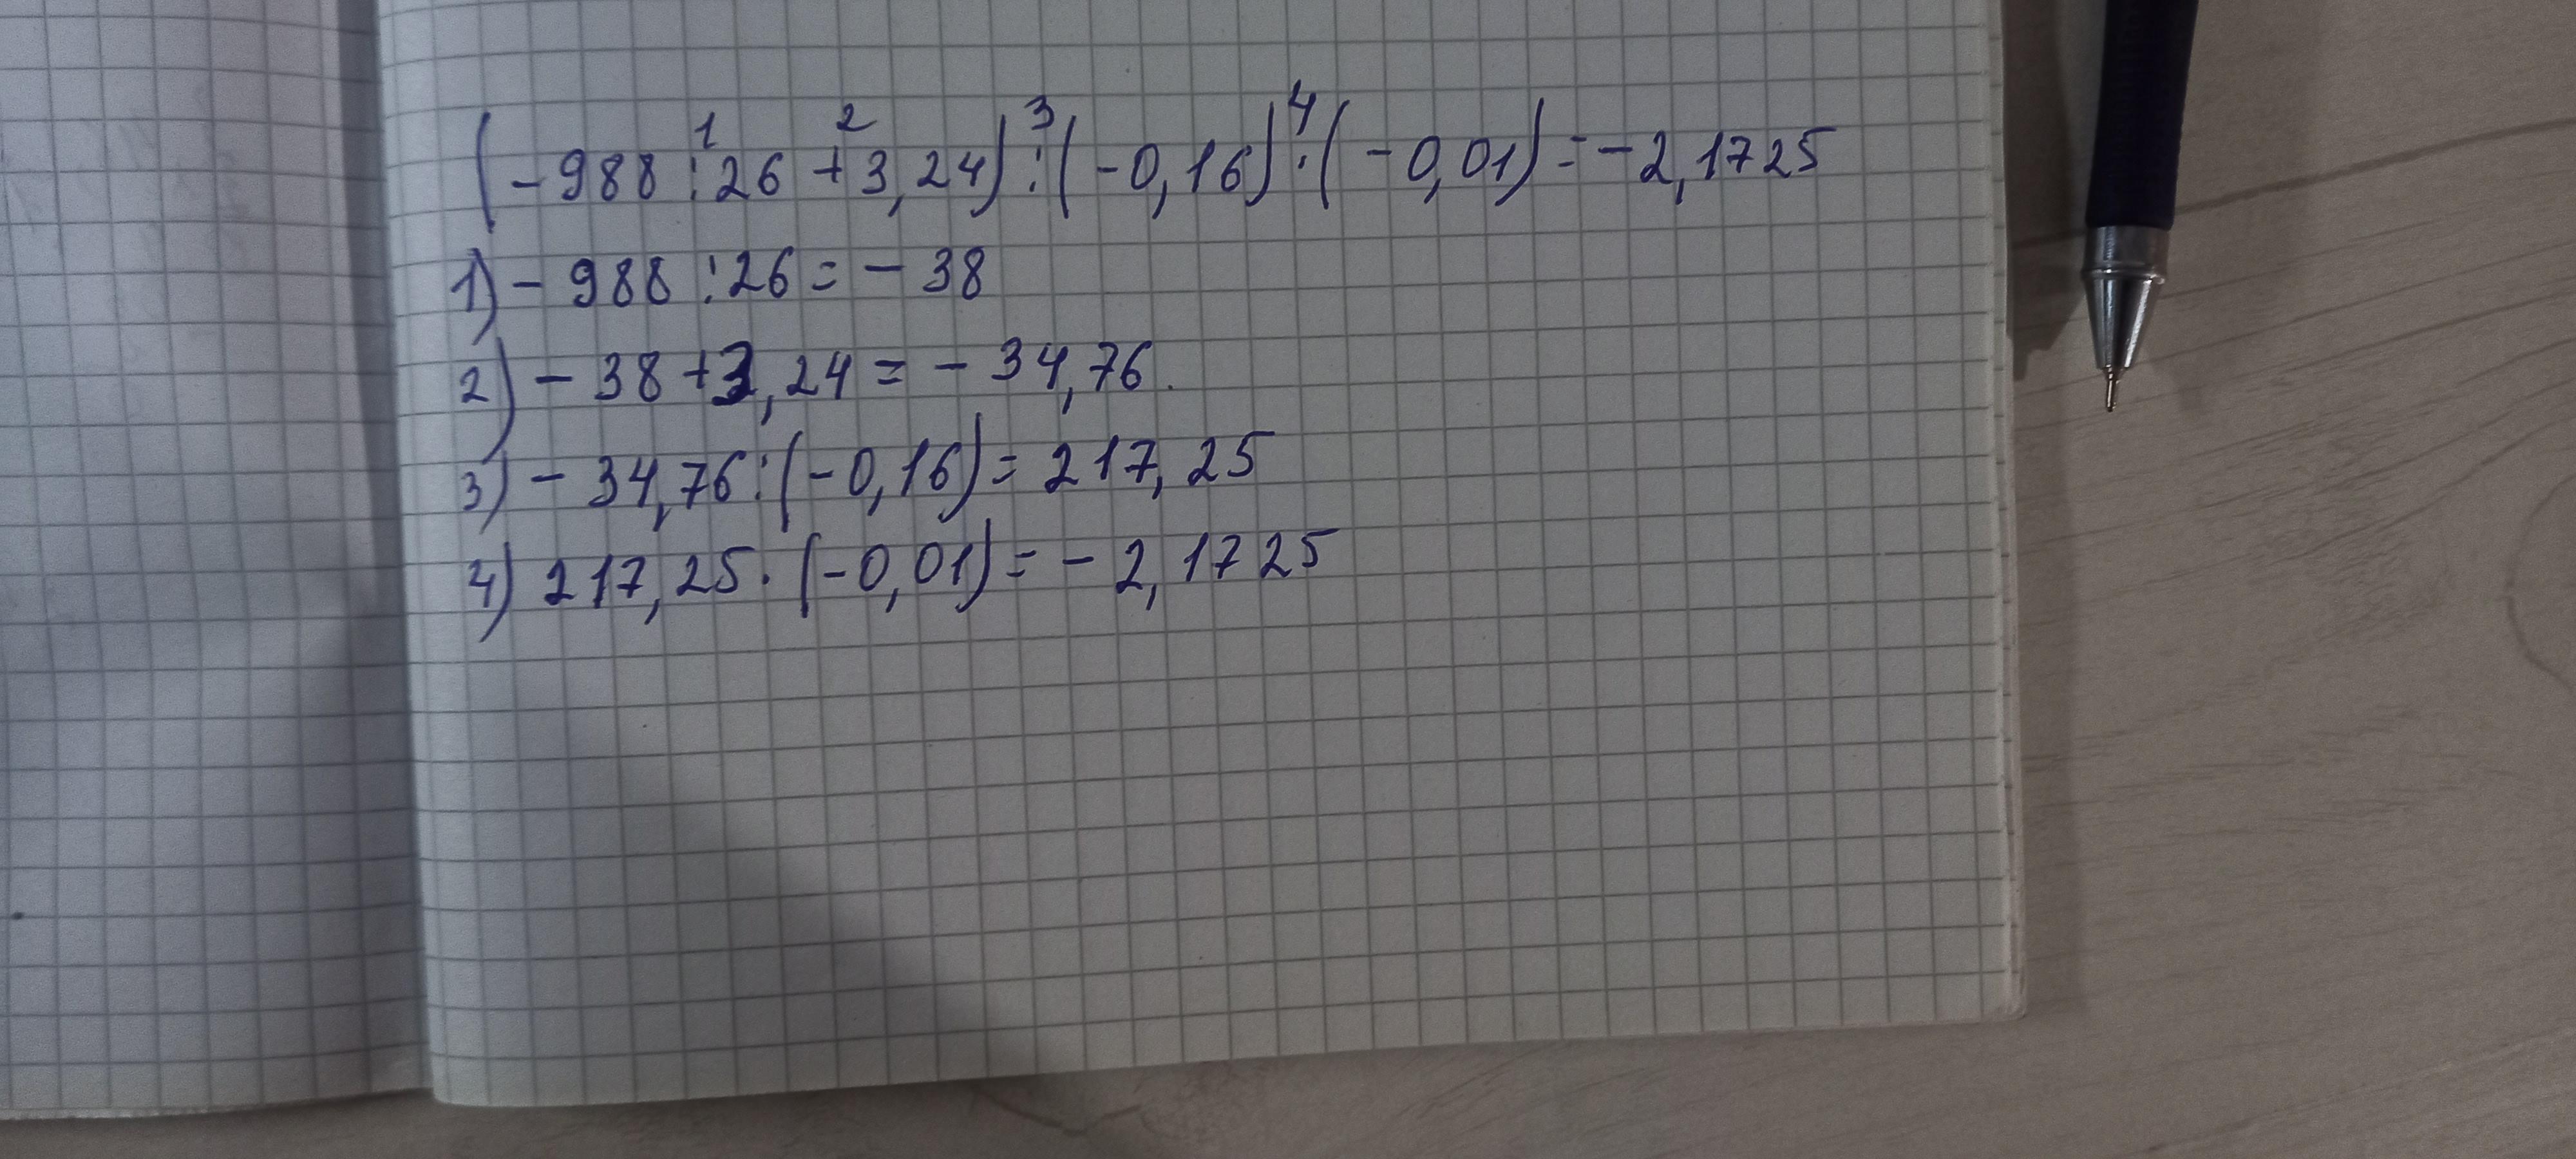 1 2 3 4
(-988:26+3,24):(-0,16)·(-0,01)=-2,1725
1) -988:26=-38
2) -38+3,24=-34,76.
3) -34,76:(-0,16)=217,25
4) 217,25·(-0,01)=-2,1725